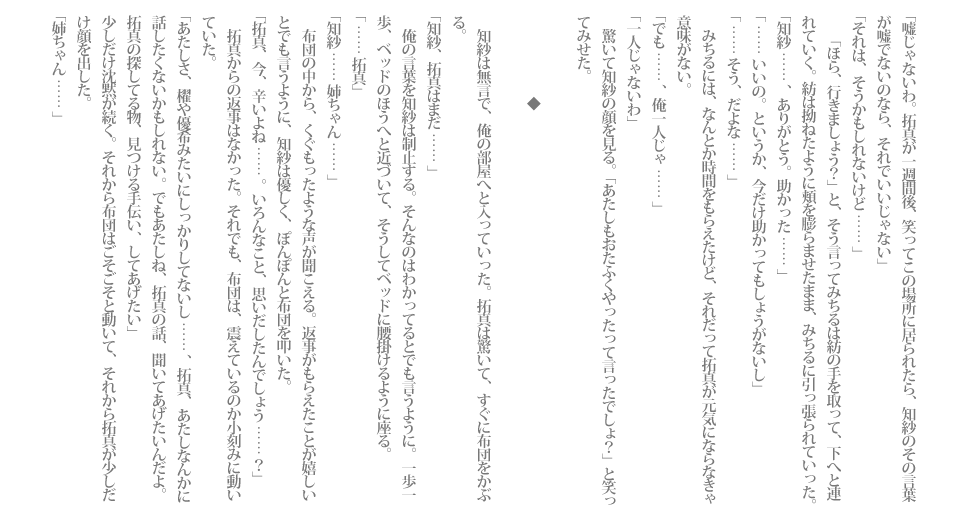 「嘘じゃないわ。拓真が一週間後、笑ってこの場所に居られたら、知紗のその言葉
が嘘でないのなら、それでいいじゃない」
「それは、そうかもしれないけど……」
「ほら、行きましょう？」と、そう言ってみちるは紡の手を取って、下へと連
れていく。紡は拗ねたように頬を膨らませたまま、みちるに引っ張られていった。
「知紗……、ありがとう。助かった……」
「……いいの。というか、今だけ助かってもしょうがないし」
「……そう、だよな……」
みちるには、なんとか時間をもらえたけど、それだって拓真が元気にならなきゃ
意味がない。
「でも……、俺一人じゃ……」
「一人じゃないわ」
驚いて知紗の顔を見る。「あたしもおたふくやったって言ったでしょ？」と笑っ
てみせた。
◆
知紗は無言で、俺の部屋へと入っていった。拓真は驚いて、すぐに布団をかぶ
る。
「知紗、拓真はまだ……」
俺の言葉を知紗は制止する。そんなのはわかってるとでも言うように。一歩一
歩、ベッドのほうへと近づいて、そうしてベッドに腰掛けるように座る。
「……拓真」
「知紗……姉ちゃん……」
布団の中から、くぐもったような声が聞こえる。返事がもらえたことが嬉しい
とでも言うように、知紗は優しく、ぽんぽんと布団を叩いた。
「拓真、今、辛いよね……。いろんなこと、思いだしたんでしょう……？」
拓真からの返事はなかった。それでも、布団は、震えているのか小刻みに動い
ていた。
「あたしさ、櫂や優希みたいにしっかりしてないし……、拓真、あたしなんかに
話したくないかもしれない。でもあたしね、拓真の話、聞いてあげたいんだよ。
拓真の探してる物、見つける手伝い、してあげたい」
少しだけ沈黙が続く。それから布団はごそごそと動いて、それから拓真が少しだ
け顔を出した。
「姉ちゃん……」